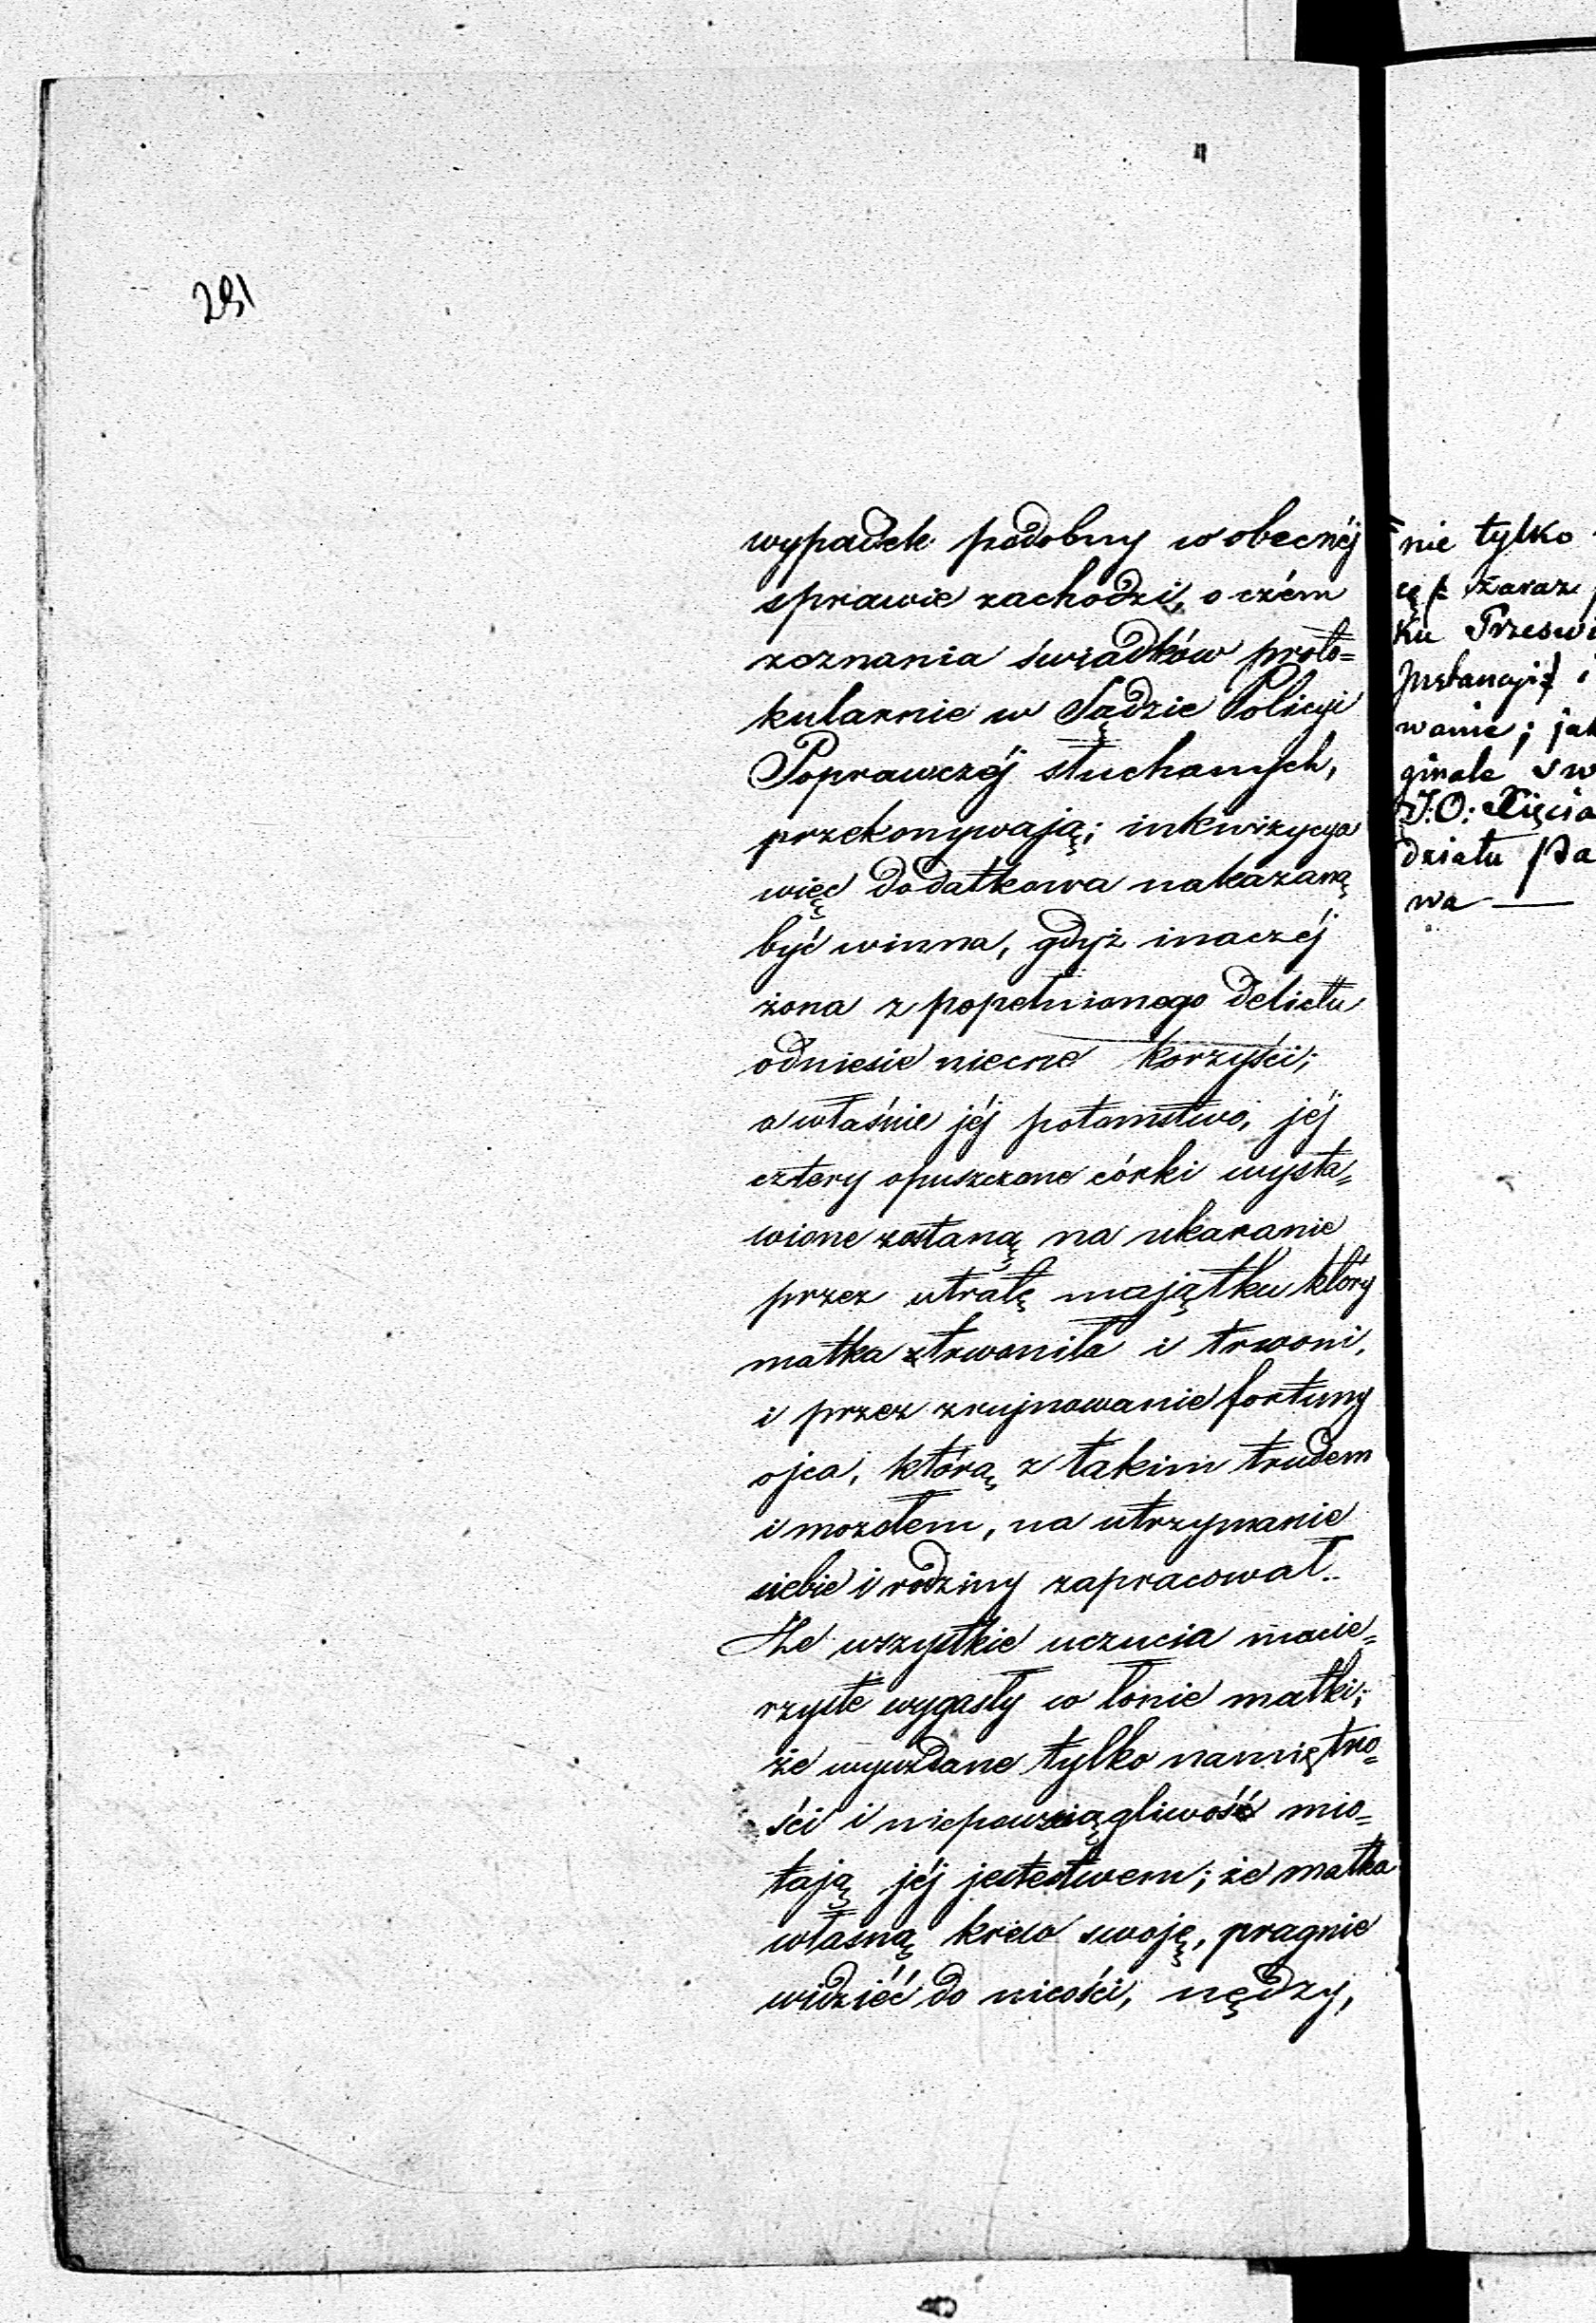 281
wypadek podobny w obecnéj
sprawie zachodzi, o czém
zeznania świadków proto=
kularnie w Sądzie Policyi
Poprawczéj słuchanych,
przekonywają; inkwizycya
więc dodatkowa nakazaną
być winna, gdyż inaczéj
żona z popełnionego delictu
odniesie niecne korzyści;
a właśnie jéj potomstwo, jéj
cztery opuszczone córki wysta=
wione zostaną na ukaranie
przez utratę majątku który
matka ztrwoniła i trwoni,
i przez zrujnowanie fortuny
ojca, którą z takim trudem
i mozołem, na utrzymanie
siebie i rodziny zapracował.
Że wszystkie uczucia macie=
rzyste wygasły w łonie matki;
że wyuzdane tylko namiętno=
ści i niepowściągliwość mio=
tają jéj jestestwem; że matka
własną krew swoję, pragnie
widziéć do nicości, nędzy,
nie tylko
cą zaraz
ku Prześwi
Instancyi i
wanie; jak
ginale sw
J.O. Xięcia
działu Pa
wa —